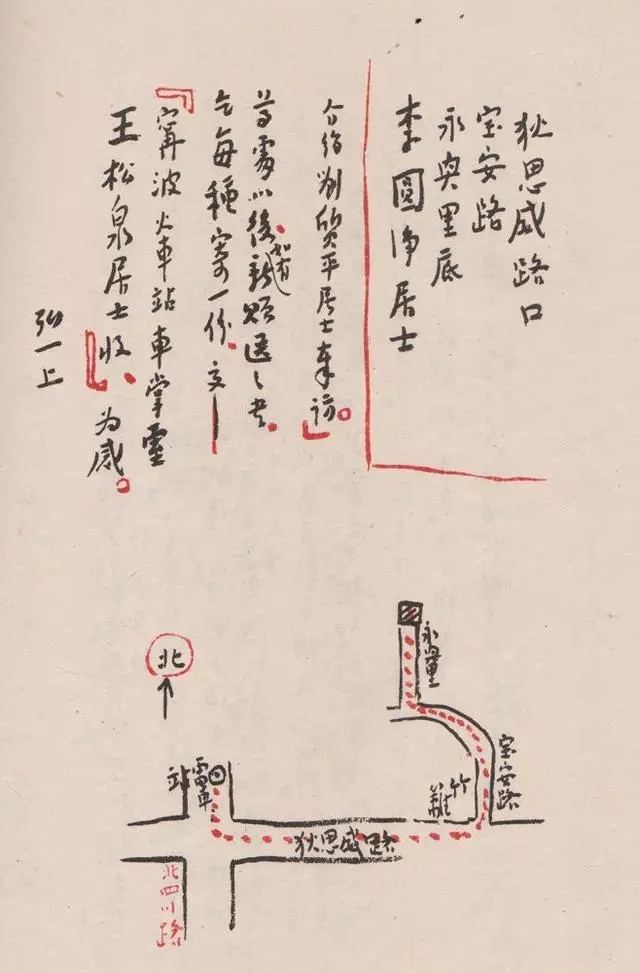 狄思威路口
宝安路
永興里底
李圓净居士
介绍刘質平居士奉訪。
尊處以後如有新贈送之书
乞每種寄一份交
「寧波火車站車掌
王松泉居士收」为感。
弘一上
北
永興里
宝安路
竹籬
電車站
狄思威路
北四川路